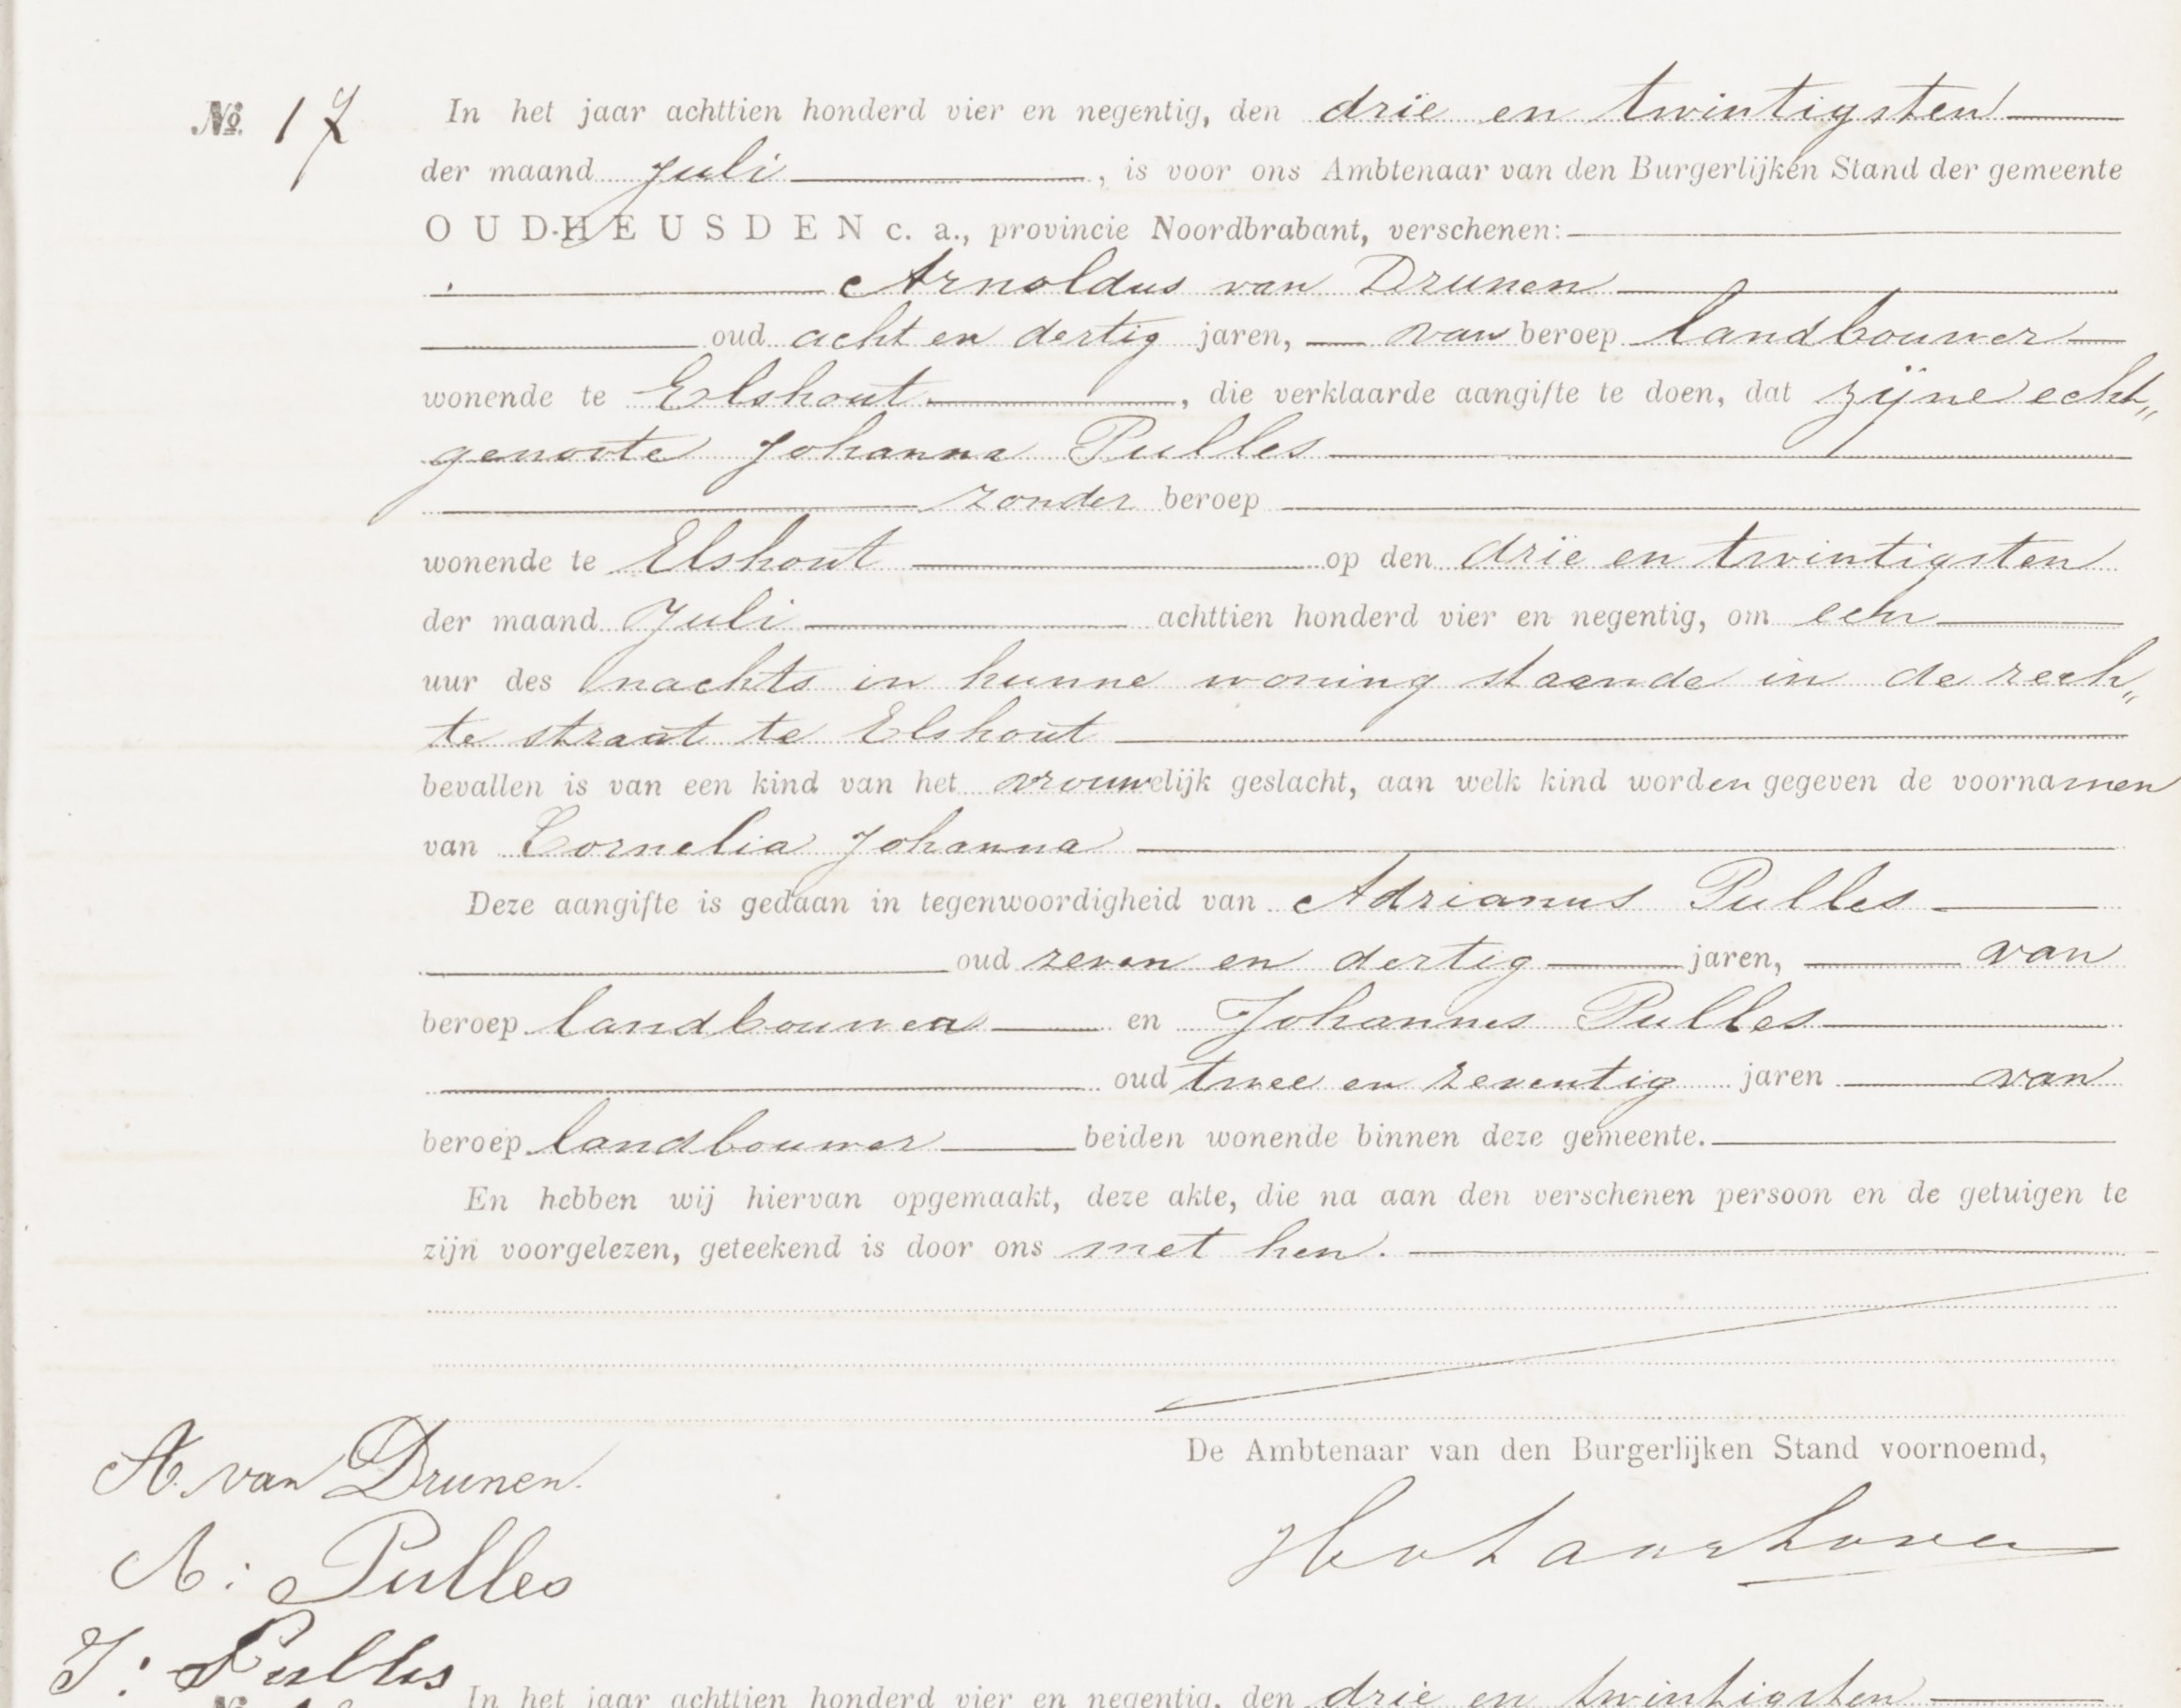 No. 17 In het jaar achttien honderd vier en negentig, den drie en twintigsten
der maand Juli, is voor ons Ambtenaar van den Burgerlijken Stand der gemeente
OUDHEUSDEN c. a., provincie Noordbrabant, verschenen:
Arnoldus van Drunen
oud acht en dertig jaren, van beroep landbouwer
wonende te Elshout, die verklaarde aangifte te doen, dat zijne echt„
genoote Johanna Pulles
zonder beroep
wonende te Elshout op den drie en twintigsten
der maand Juli achttien honderd vier en negentig, om een
uur des nachts in hunne woning staande in de rech„
te straat te Elshout
bevallen is van een kind van het vrouwelijk geslacht, aan welk kind worden gegeven de voornamen
van Cornelia Johanna
Deze aangifte is gedaan in tegenwoordigheid van Adrianus Pulles
oud zeven en dertig jaren, van
beroep landbouwer en Johannes Pulles
oud twee en zeventig jaren van
beroep landbouwer beiden wonende binnen deze gemeente.
En hebben wij hiervan opgemaakt, deze akte, die na aan den verschenen persoon en de getuigen te
zijn voorgelezen, geteekend is door ons met hen.
De Ambtenaar van den Burgerlijken Stand voornoemd,
A. van Drunen.
A: Pulles
J: Pulles
In het jaar achttien honderd vier en negentig, den drie en twintigsten